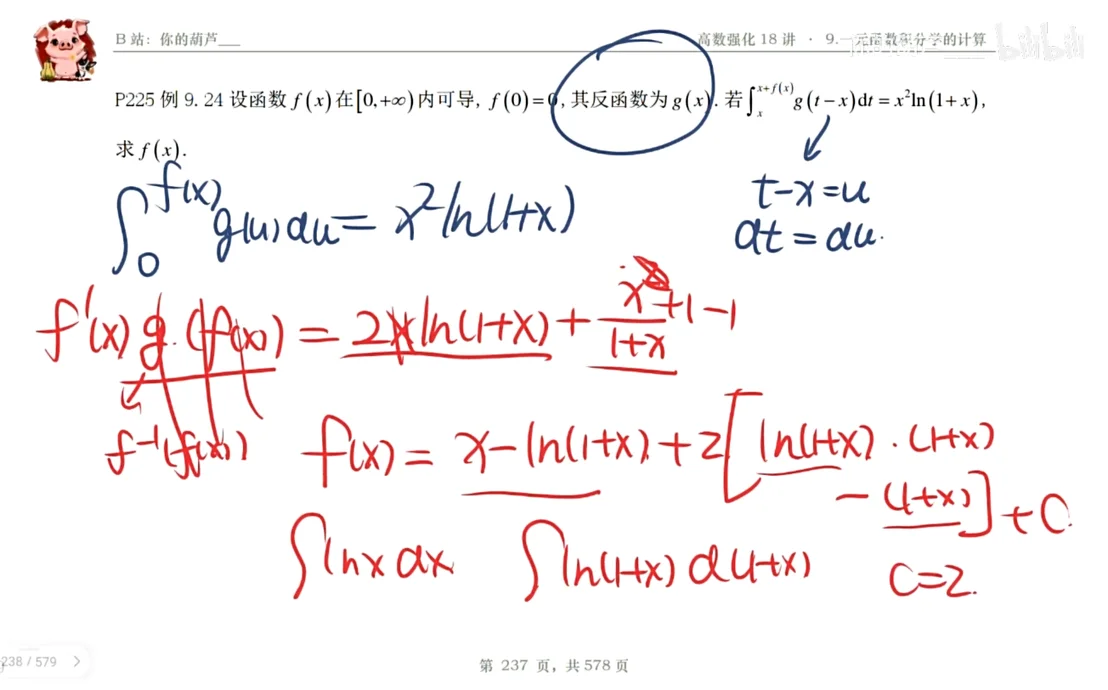 B 站：你的葫芦___
高数强化 18 讲 · 9. 一元函数积分学的计算
bilibili
P225 例 9. 24 设函数 f(x) 在 [0,+∞) 内可导, f(0)=0, 其反函数为 g(x). 若 ∫_x^{x+f(x)} g(t−x)dt = x²ln(1+x),
求 f(x).
∫_0^{f(x)} g(u)du = x²ln(1+x)
t−x=u
dt=du.
f'(x) g(f(x)) = 2x ln(1+x) + x²+1−1
1+x
f⁻¹(f(x))
f(x) = x−ln(1+x)+2[ln(1+x)·(1+x)
−(1+x)]+C
∫lnxdx ∫ln(1+x)d(1+x)
C=2.
238 / 579 >
第 237 页，共 578 页